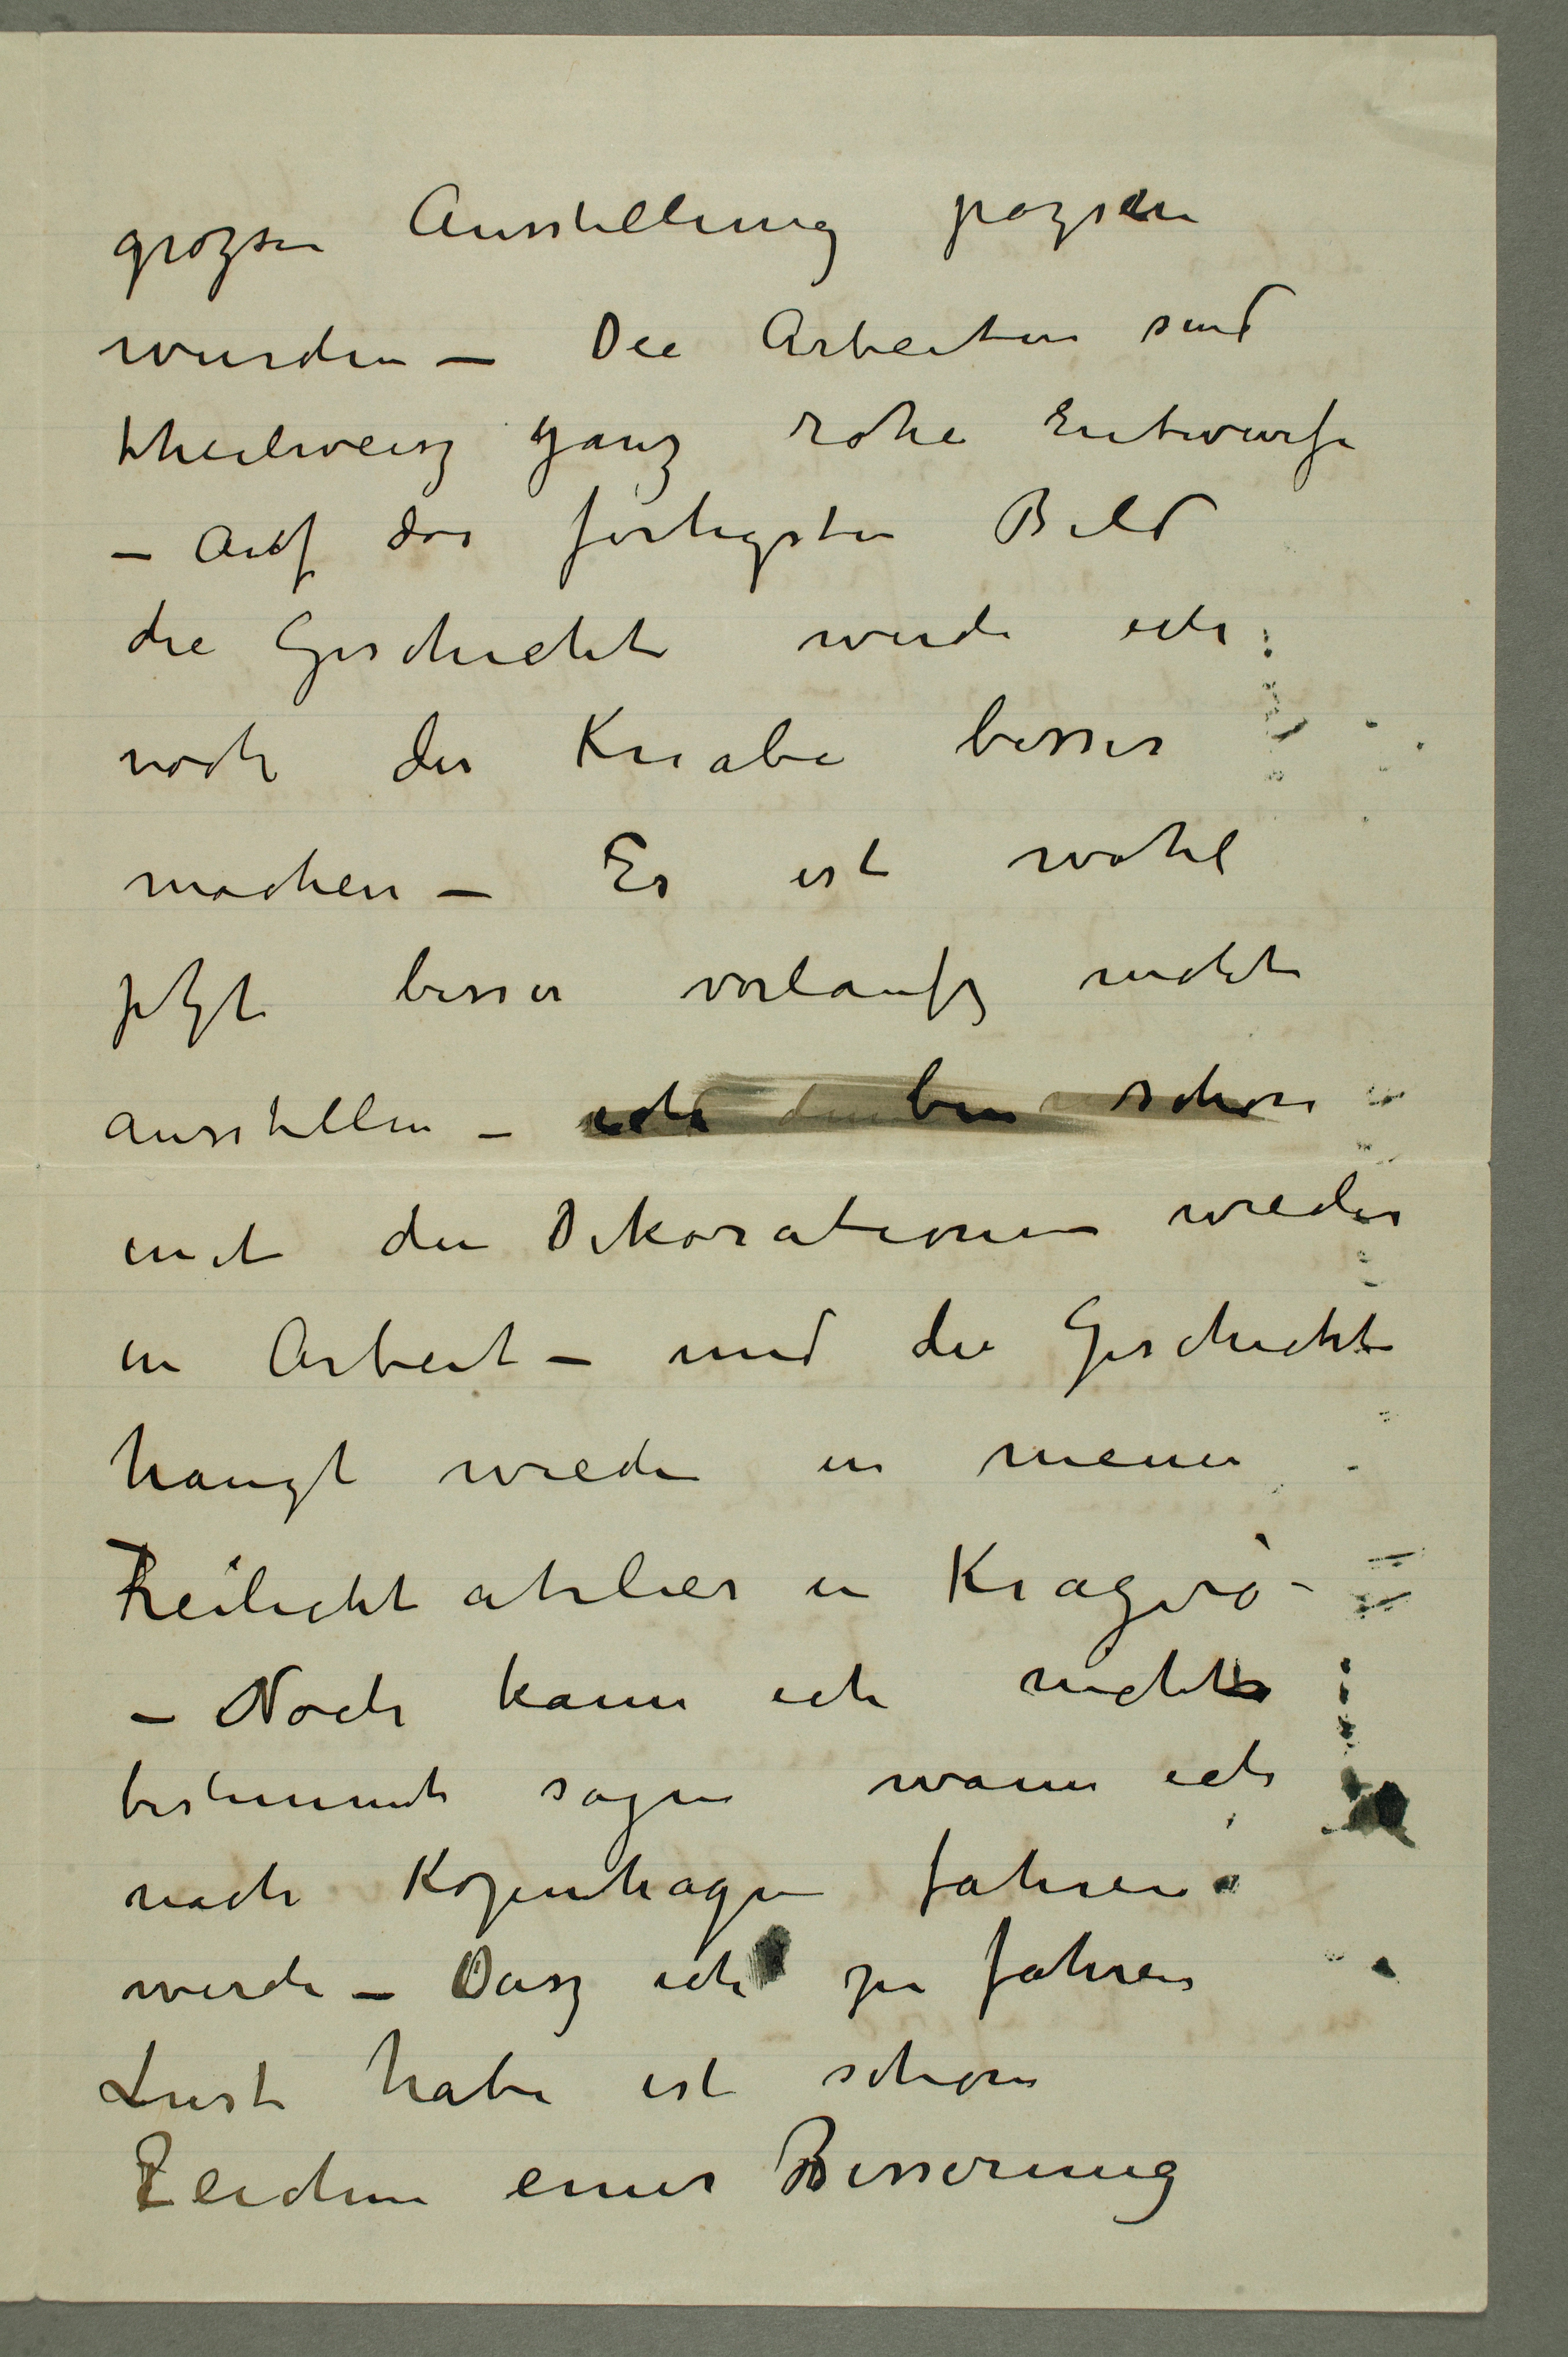 groszen Ausstellung paszen
wurden – Die Arbeiten sind
theilweisz ganz rohe Entwurfe
– Auf das fertigste Bild
die Geschichte werde ich
noch der Knabe besser
machen – Es ist wohl
jetzt besser vorlaufg nicht
ausstellen – ich bin schon
mit den Dekorationen wieder
in Arbeit – und die Geschichte
hangt wieder in meinen
Freilichtatelier in Kragerö –
– Noch kann ich nicht
bestimmt sagen wann ich
nach Kopenhagen fahren
werde – Dasz ich zu fahren
Lust habe ist schon
Zeichen einer Besserung